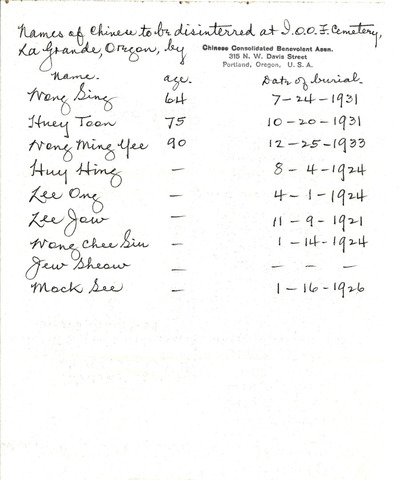 Names of Chinese to be disinterred at I.O.O.F. Cemetery,
La Grande, Oregon, by Chinese Consolidated Benevolent Assn.
315 N. W. Davis Street
Portland, Oregon, U. S. A.
Name. age. Date of burial.
Wong Sing 64 7-24-1931
Huey Toon 75 10-20-1931
Wong Ming Yee 90 12-25-1933
Huy Hing — 8-4-1924
Lee Ong — 4-1-1924
Lee Jow — 11-9-1921
Wong Chee Siu — 1-14-1924
Jew Sheow — — — —
Mock See — 1-16-1926